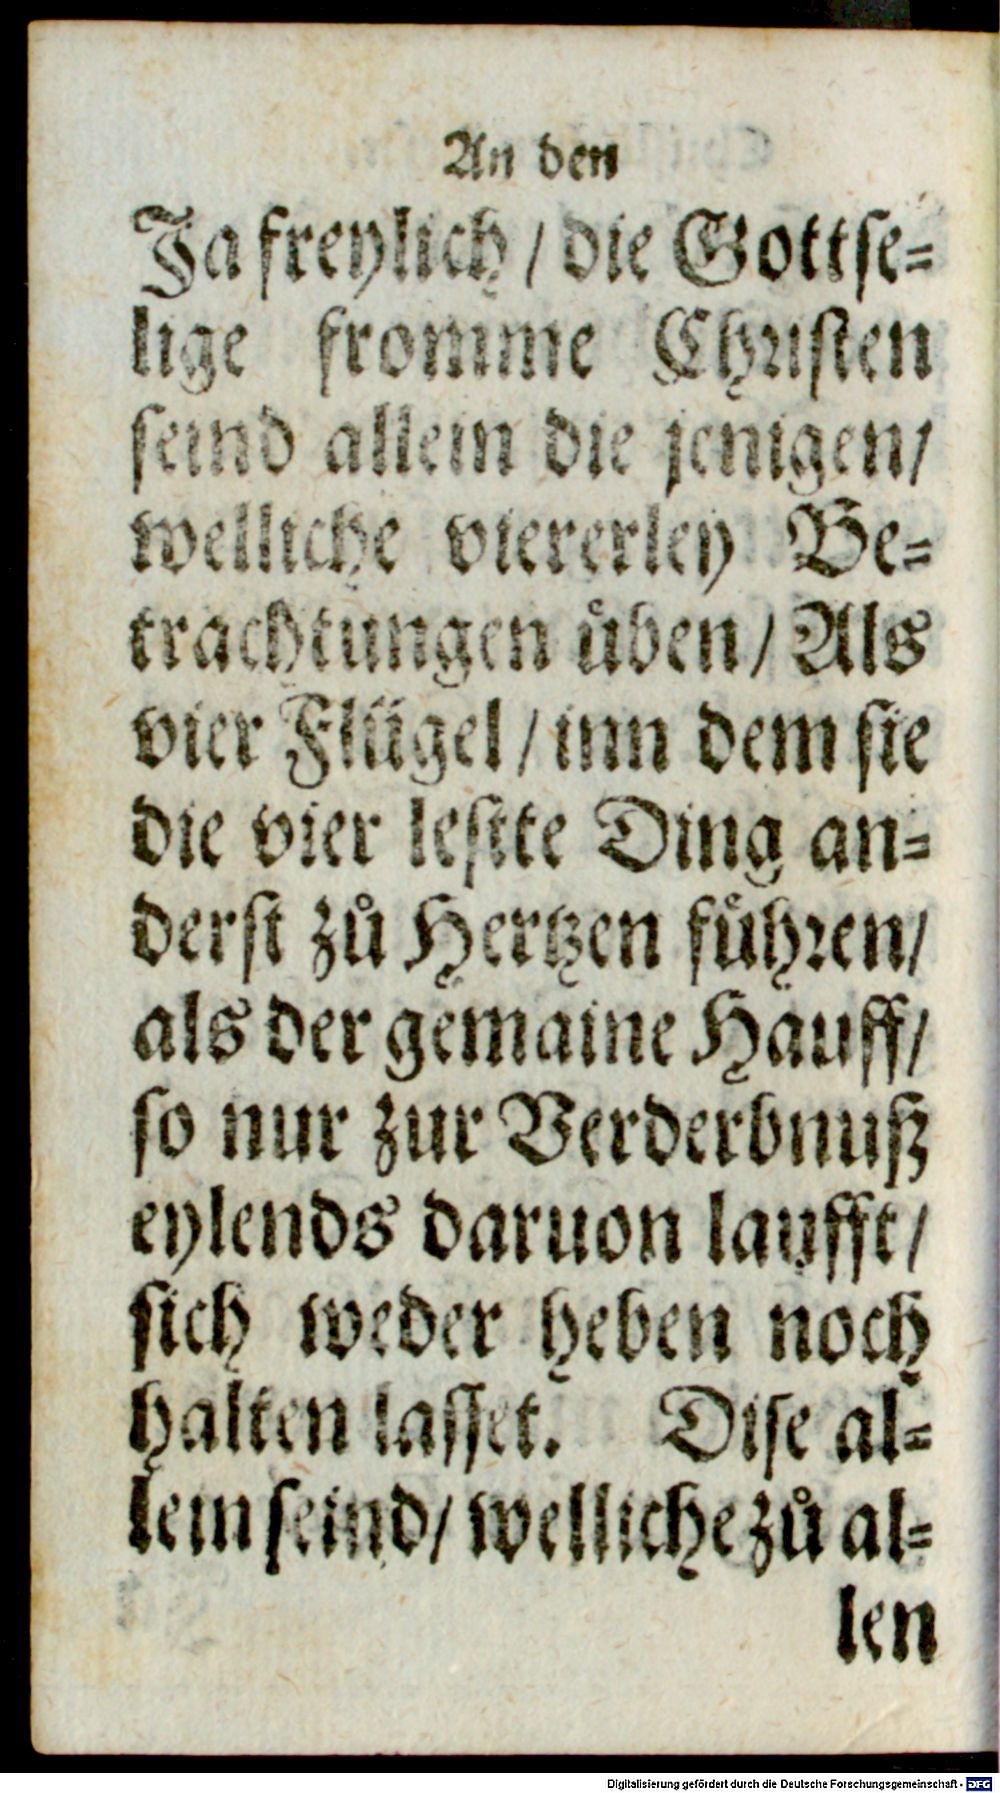 An den
Ja freylich / die Gottse-
lige fromme Christen
seind allein die jenigen /
welliche viererley Be-
trachtungen uͤben / Als
vier Fluͤgel / inn dem sie
die vier lestte Ding an-
derst zů Hertzen fuͤhren /
als der gemaine Hauff /
so nur zur Verderbnuß
eylends daruon laufft /
sich weder heben noch
halten lasset. Dise al-
lein seind / welliche zů al-
len
Digitalisierung gefördert durch die Deutsche Forschungsgemeinschaft - DFG